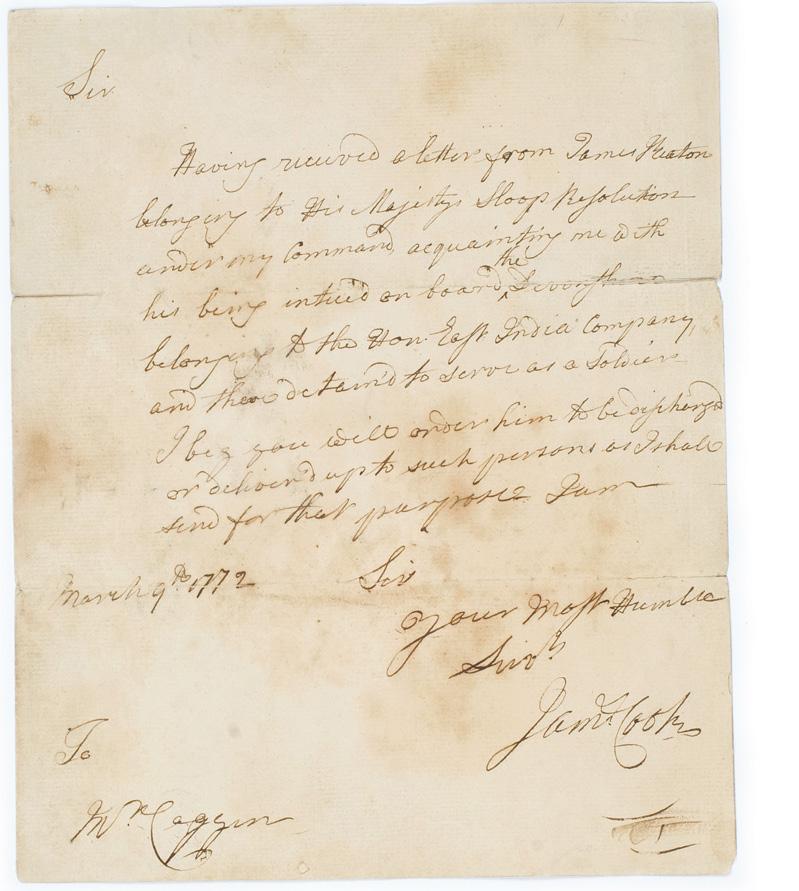 Sir
Having received a letter from James Keaton
belonging to His Majestys Sloop Resolution
under my Command, acquainting me with
his being inticed on board the Devonshire
belonging to the Hon East India Company,
and there detain'd to serve as a Soldier
I beg you will order him to be discharg'd
or deliver'd up to such persons as I shall
send for that purpose I am
March 9th 1772
Sir
your Most Humble
Servt
Jams Cook
To
Mr Coggin